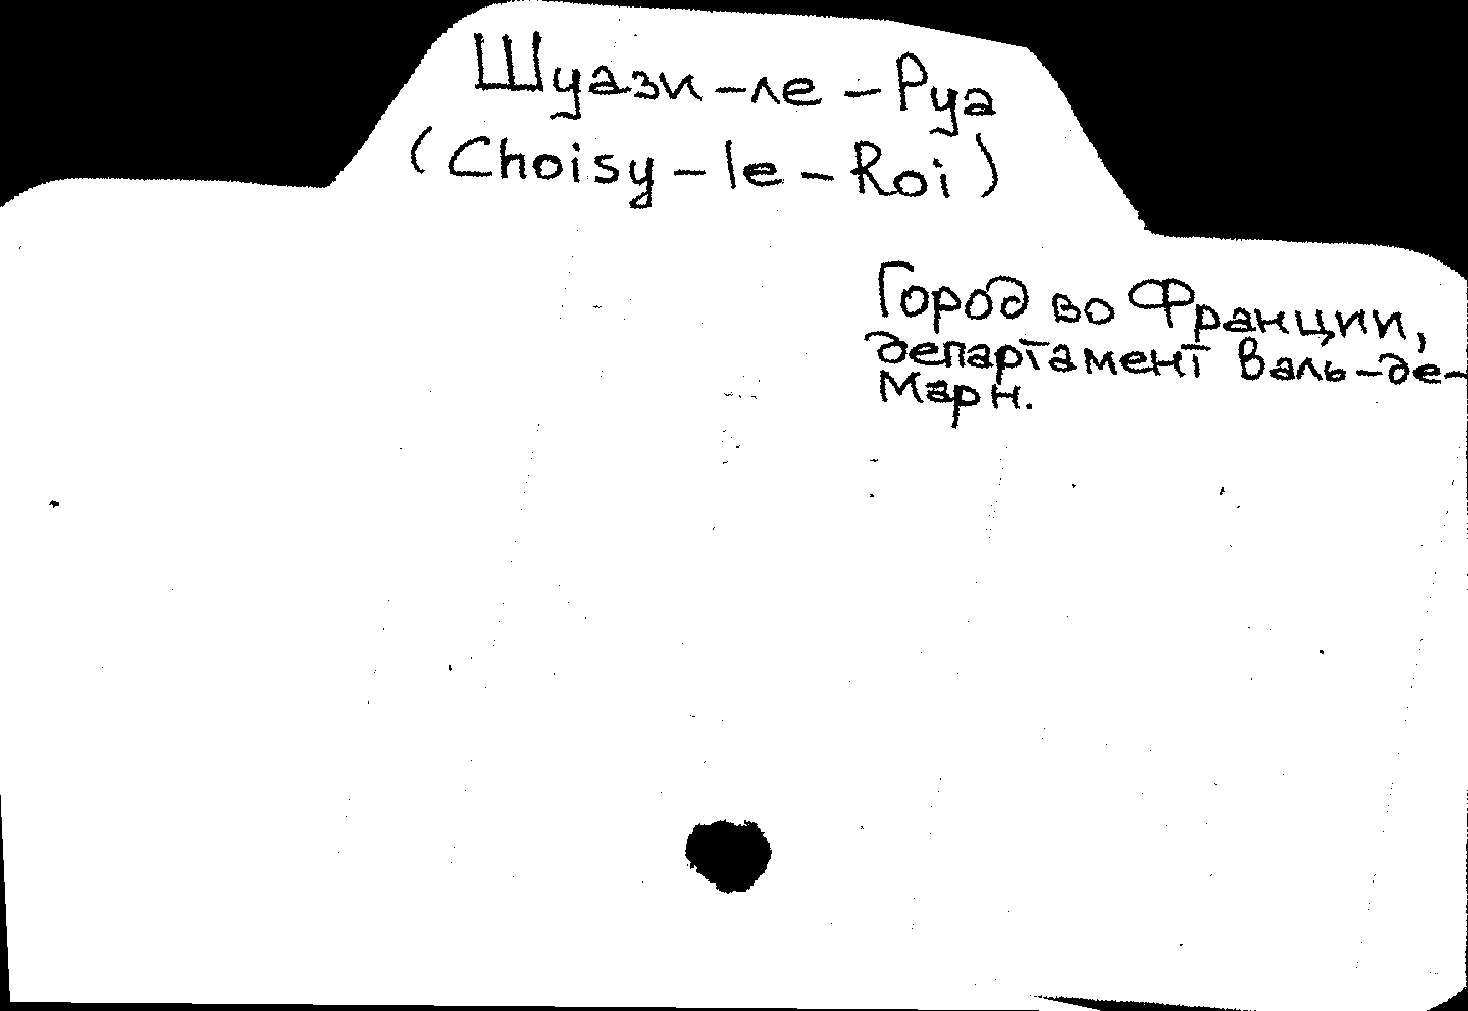 Шуази-ле-Руа
(Choisy-le-Roi)
Город во Франции,
департамент Валь-де-
Марн.